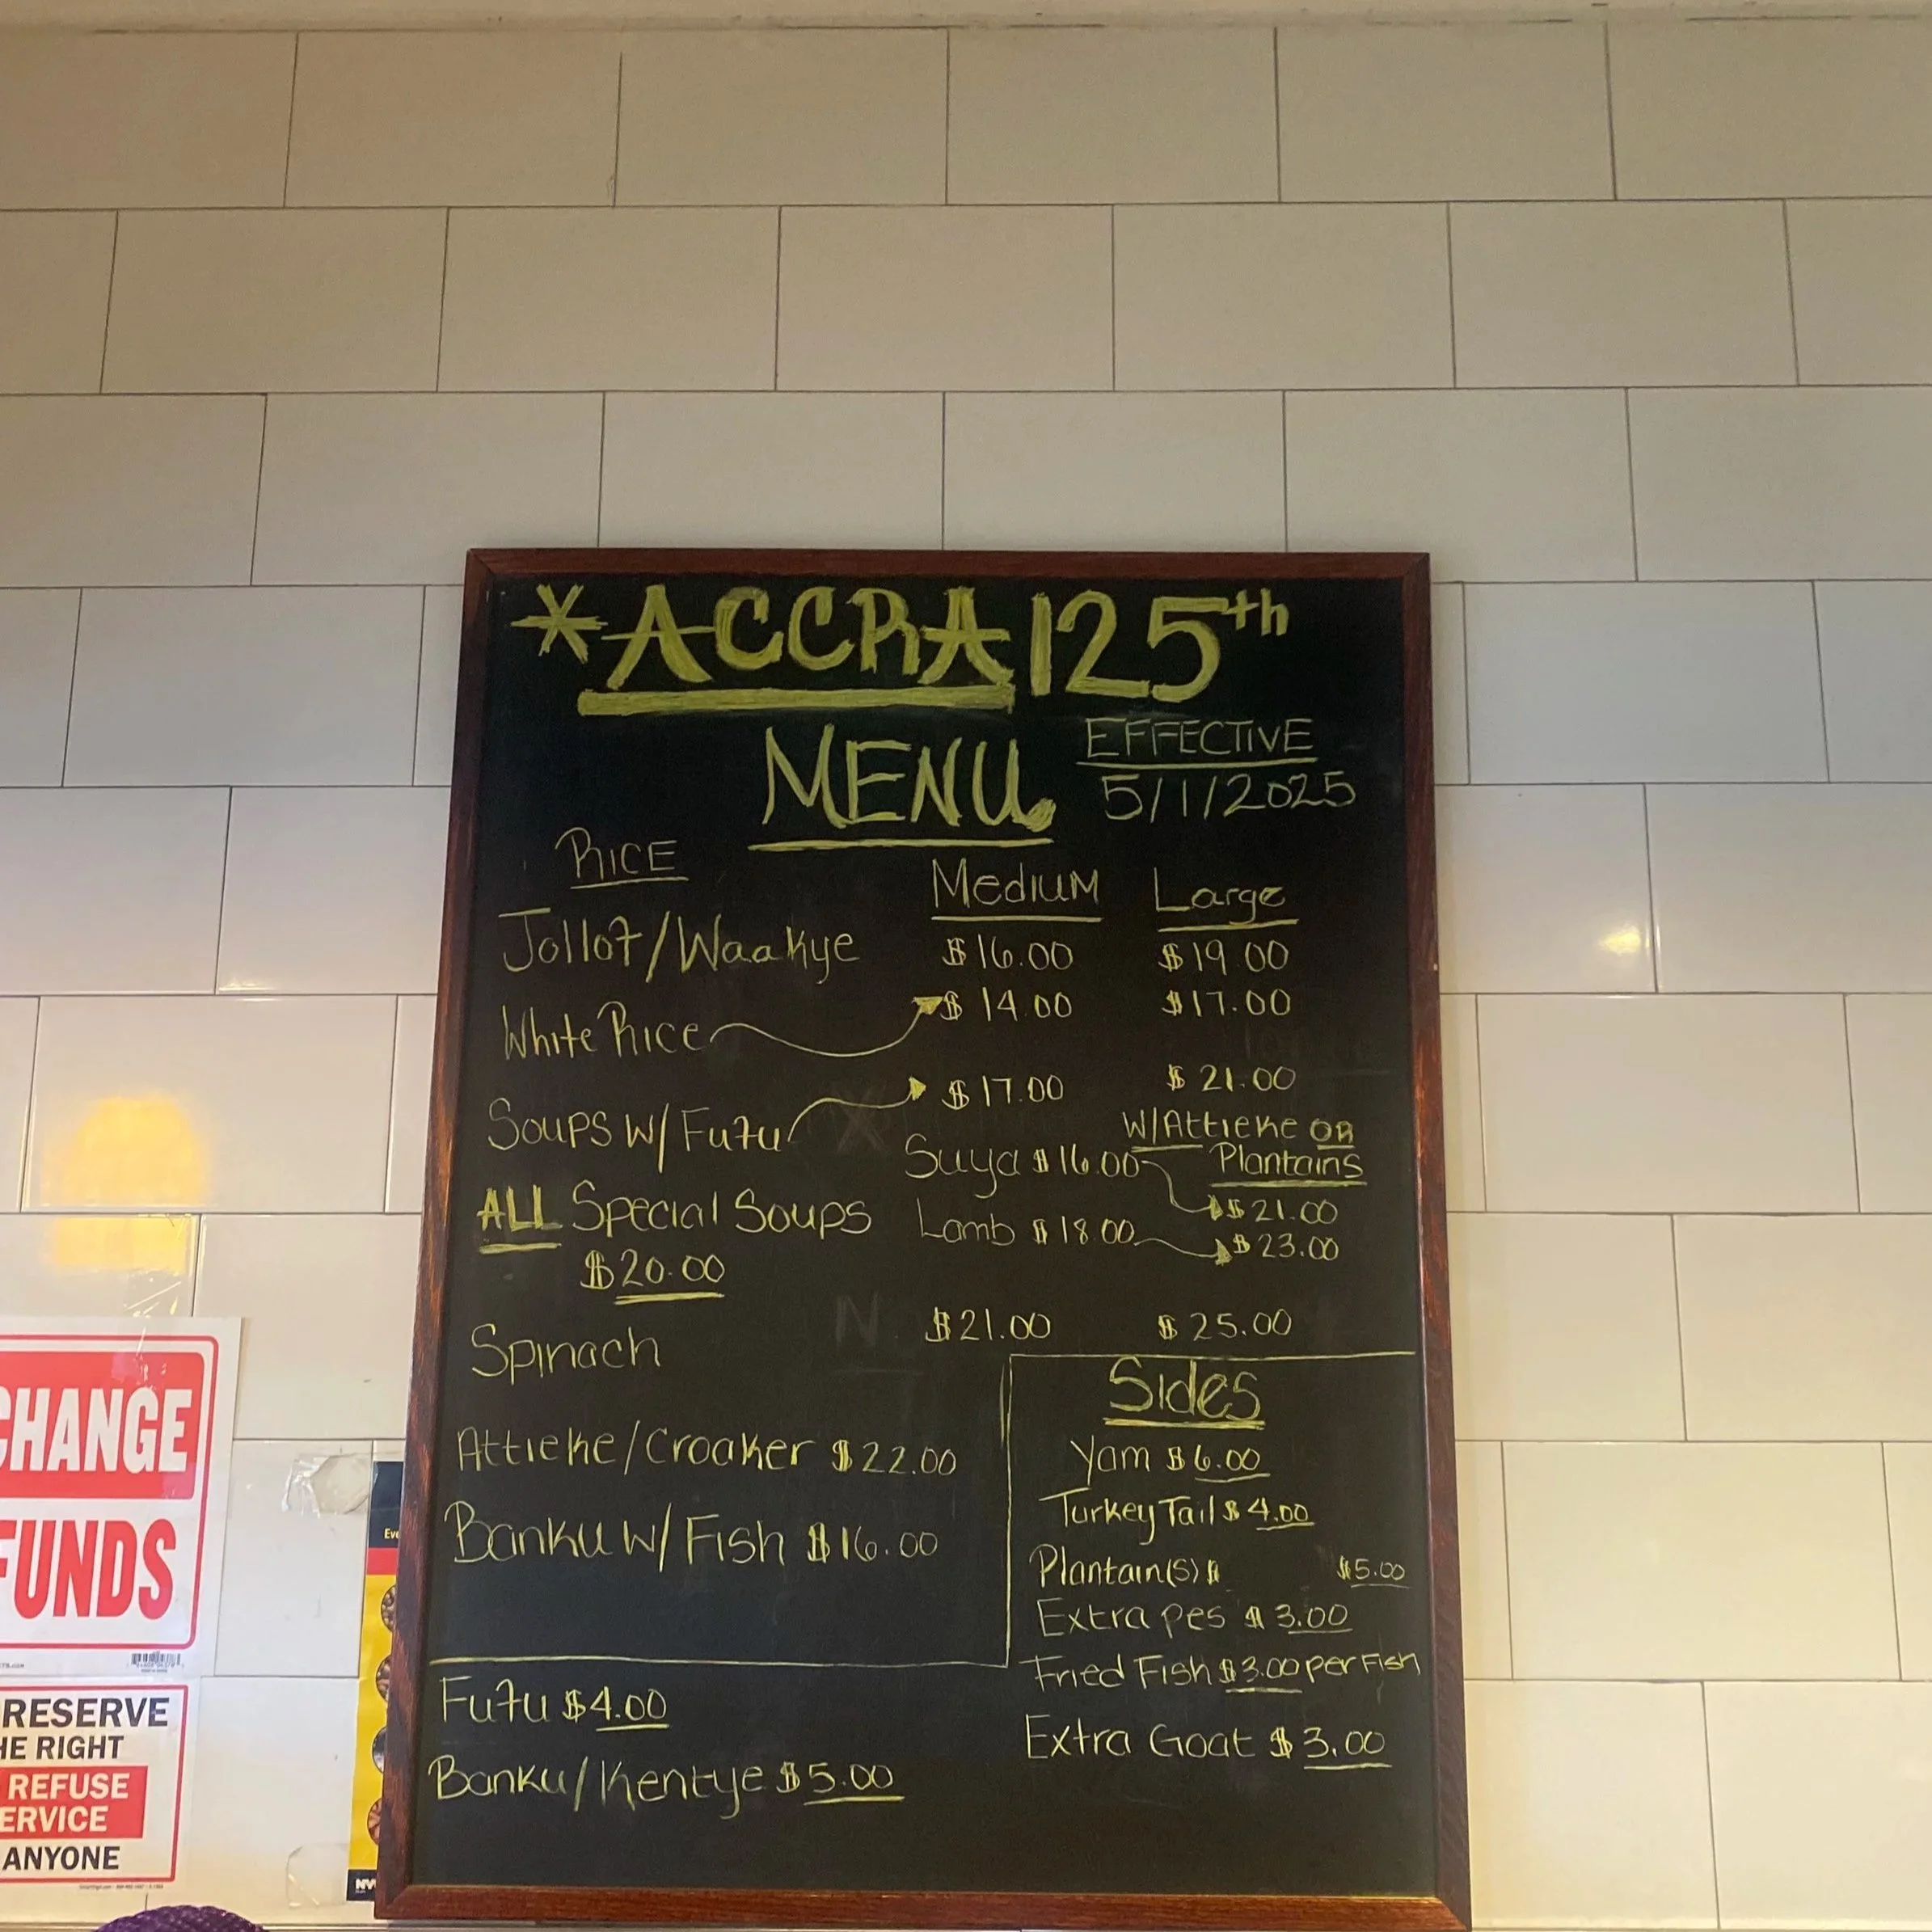 *ACCRA 125th
MENU
EFFECTIVE
5/1/2025
RICE
Medium Large
Jollof/Waakye $16.00 $19.00
White Rice $14.00 $17.00
Soups w/Fufu $17.00 $21.00
W/Attieke OR
Plantains
Suya $16.00 $21.00
ALL Special Soups
$20.00
Lamb $18.00 $23.00
Spinach $21.00 $25.00
Attieke/Croaker $22.00
Banku w/ Fish $16.00
Sides
Yam $6.00
Turkey Tail $4.00
Plantain(s) $ $5.00
Extra pes $3.00
Fried Fish $3.00 per Fish
Extra Goat $3.00
Fufu $4.00
Banku/Kentye $5.00
CHANGE
FUNDS
RESERVE
HE RIGHT
REFUSE
ERVICE
ANYONE
Eve
NY